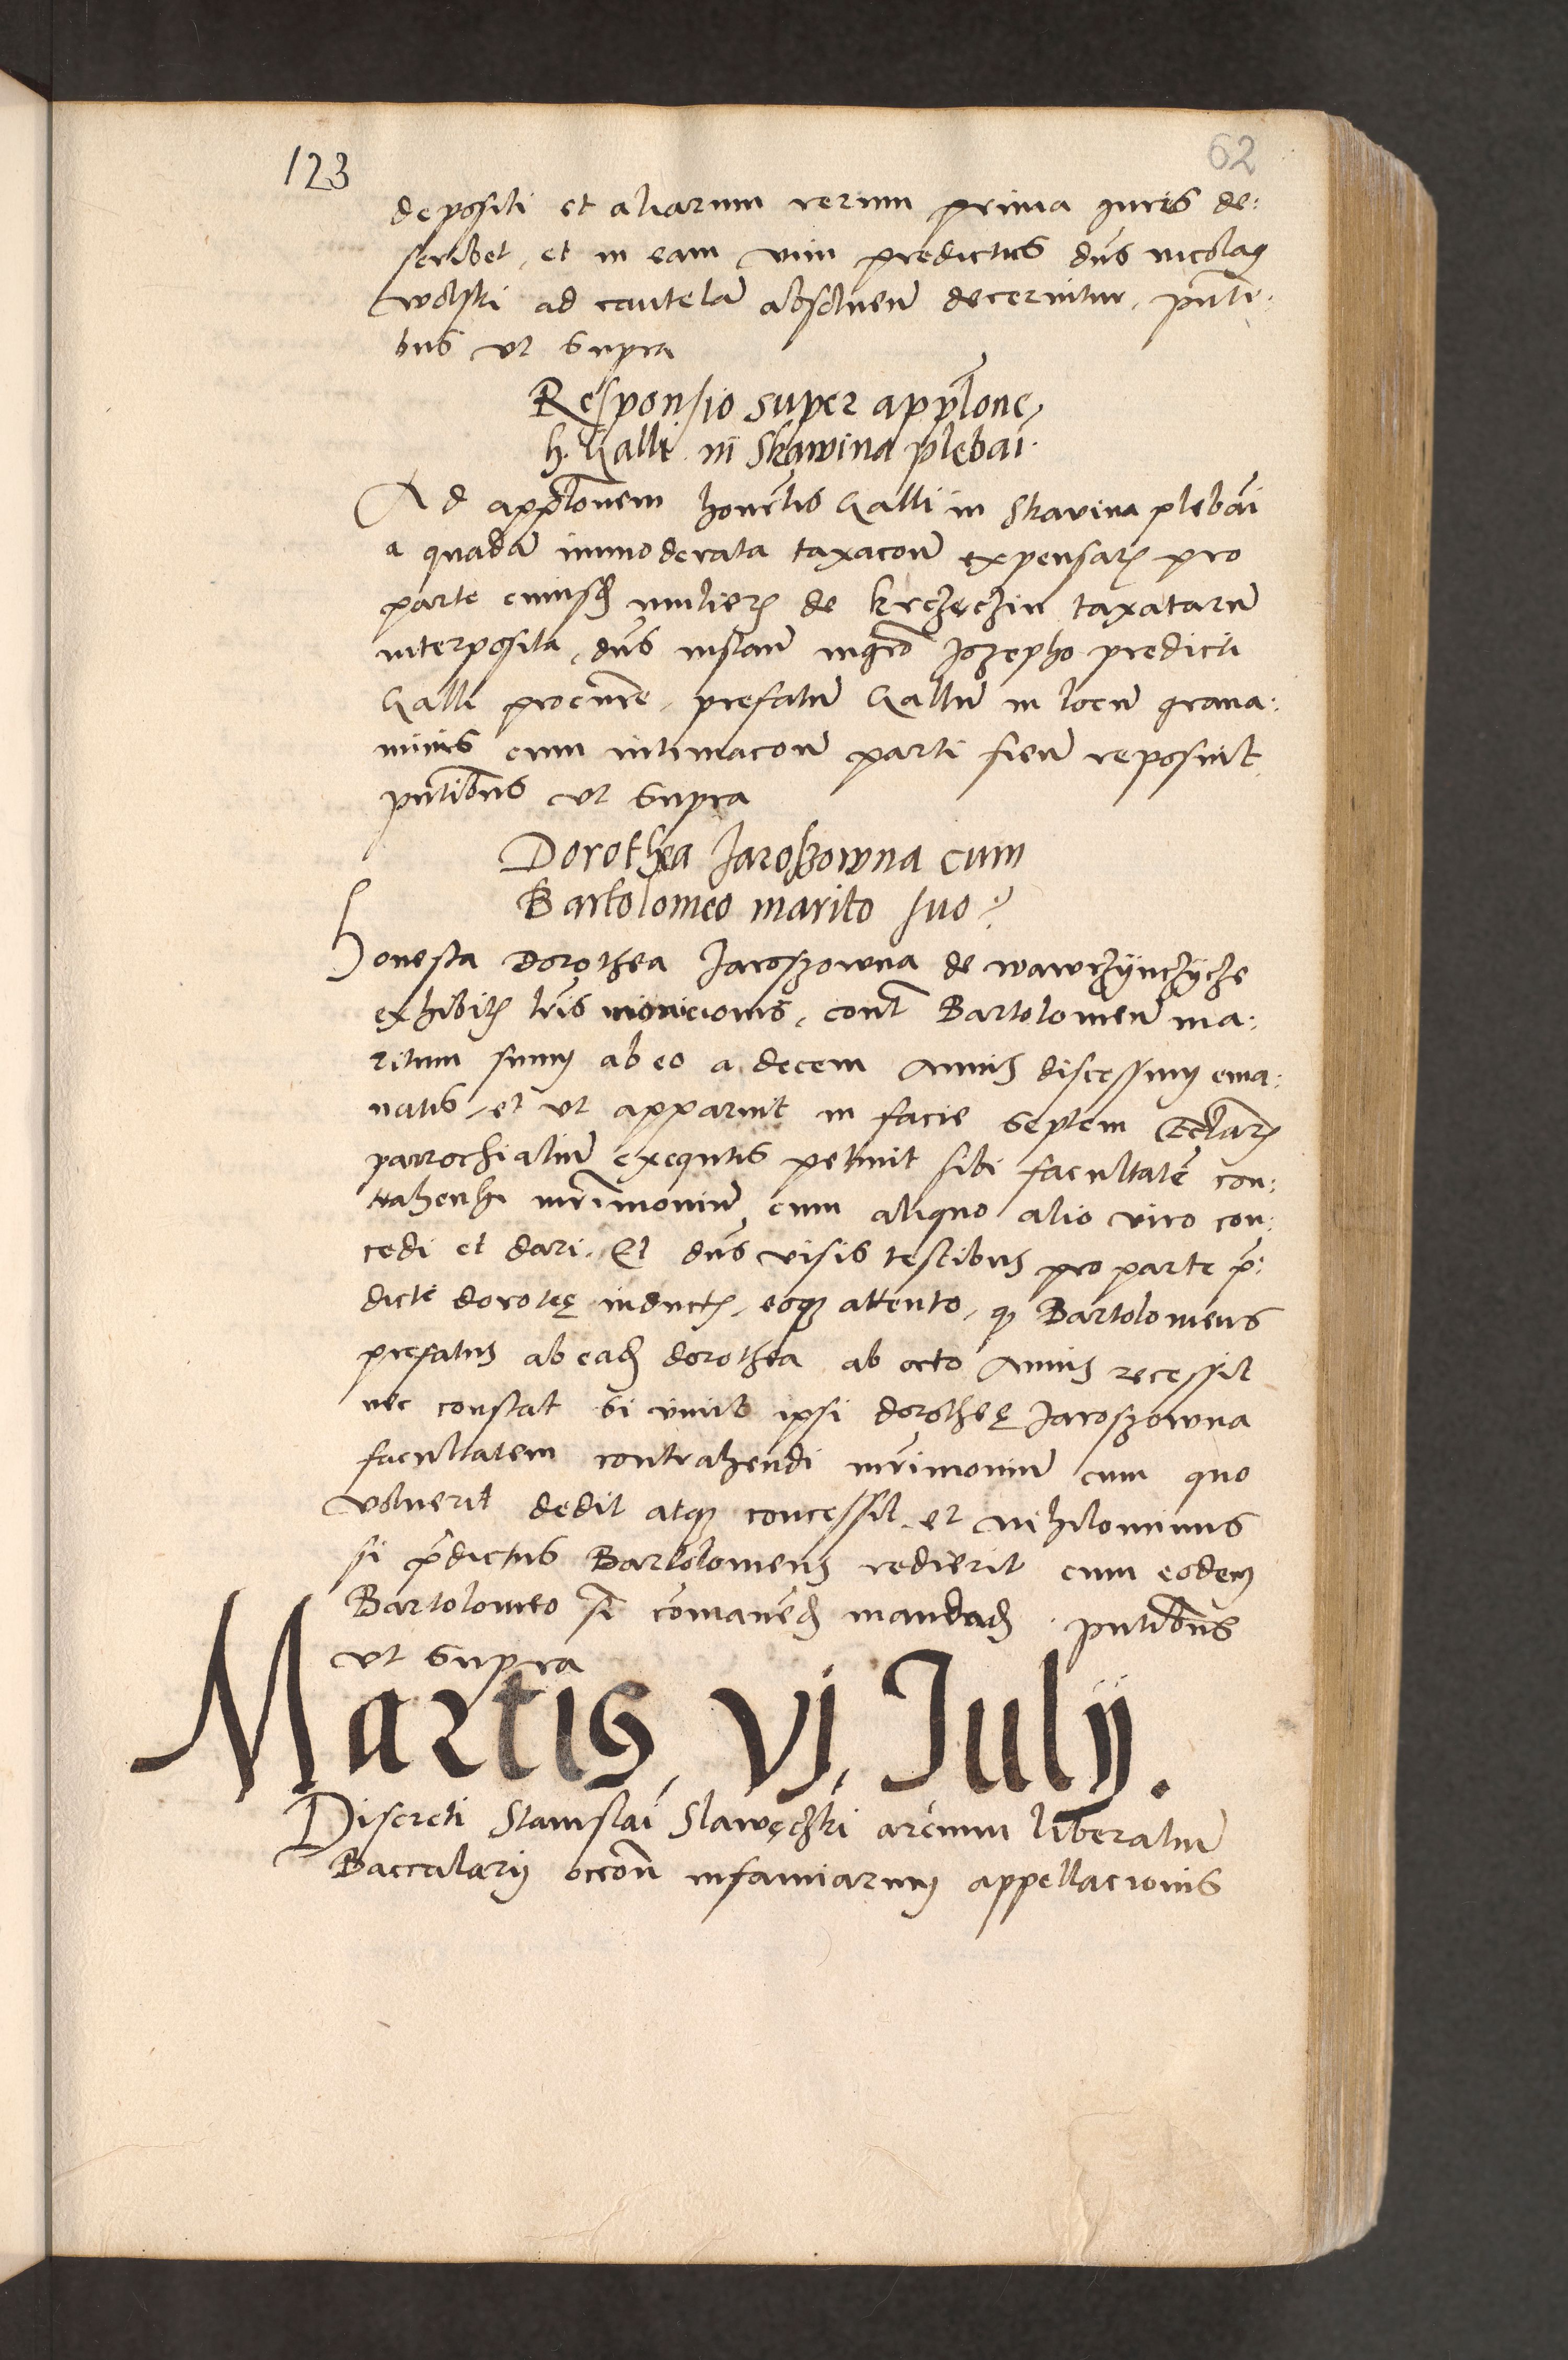 123
62
depositi et aliarum rerum prima iuris de:
scribet, et in eam vim predictus dns nicolaus
wolski ad cautela absoluen decernitur, pnti:
bus vt supra
Responsio super applone
h. Galli in Skawina plebai.
Ad applonem honrlis Galli in Skavina plebai
a quada immoderata taxacon expensar pro
parte cuiusd mulier de krczęczin taxataru
interposita, dns instan mgro Jozepho predicti
Galli procure, prefatu Gallu in locu grana:
minis cum intimacon parti fien reposuit
pntibus vt supra
Dorothea Jaroszowna cum
Bartolomeo marito suo
Honesta Dorothea Jaroszowna de wawrzynczycze
exhibit lris monicionis, cont Bartolomeu ma:
ritum suum ab eo a decem annis discessum ema:
natis, et vt apparuit in facie septem Ecclar
parrochialiu exequtis petiuit sibi facultate con:
trahendi mrimoniu cum aliquo alio viro con:
cedi et dari. Et dns visis testibus pro parte p:
dicte doroteę induct, eoque attento, q Bartolomeus
prefatus ab ead dorothea ab octo annis recessit
nec constat si viuit ipsi dorotheę Jaroszowna
facultatem contrahendi mrimoniu cum quo
voluerit dedit atque concessit, et nihilominus
si pdictus Bartolomeus redierit cum eodem
Bartolomeo si comaned mandad. pntibus
vt supra
Martis, vj, Julij.
Discreti Stanislai Slawęczki arcium liberaliu
Baccalarij occon infamiarum appellacionis